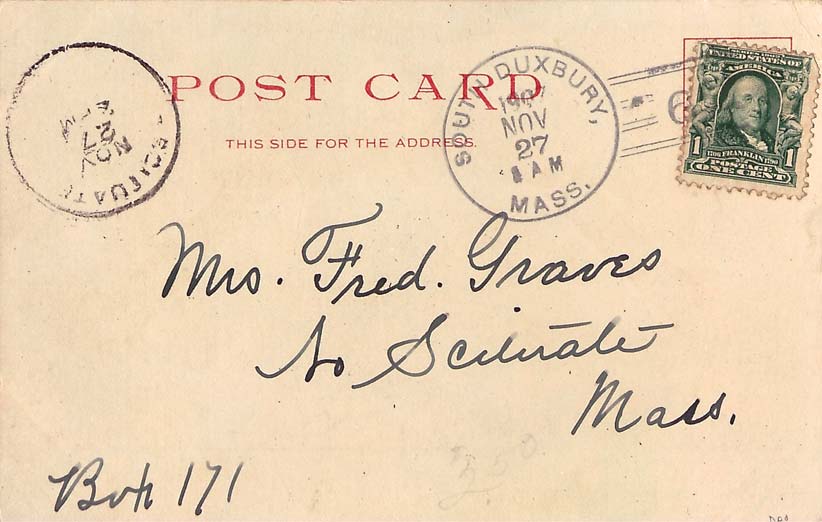 POST CARD
THIS SIDE FOR THE ADDRESS.
SOUTH DUXBURY,
NOV
27
8 AM
MASS.
6
UNITED STATES OF
AMERICA
1 1
FRANKLIN
POSTAGE
ONE CENT
NOV
27
Mrs. Fred. Graves
No Scituate
Mass.
Box 171